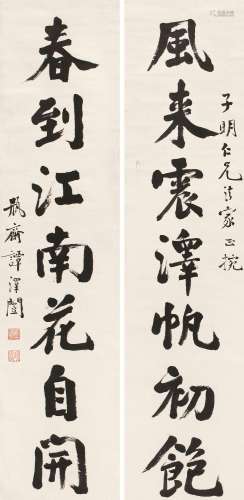 子明仁兄法家正捥
風来震澤帆初飽
春到江南花自開
瓶齋譚澤闓